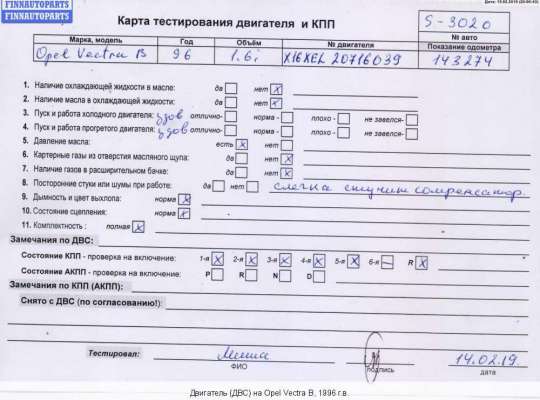 Дата: 15.02.2019
FINNAUTOPARTS
FINNAUTOPARTS
Карта тестирования двигателя и КПП
S-3020
№ авто
Марка, модель год Объём № двигателя Показание одометра
Opel Vectra B 96 1.6i X16XEL 20716039 143274
1. Наличие охлаждающей жидкости в масле: да нет X
2. Наличие масла в охлаждающей жидкости: да нет X
3. Пуск и работа холодного двигателя: удов отлично- норма - плохо - не завелся-
4. Пуск и работа прогретого двигателя: удов отлично- норма - плохо - не завелся-
5. Давление масла: есть X нет
6. Картерные газы из отверстия масляного щупа: да нет X
7. Наличие газов в расширительном бачке: да нет X
8. Посторонние стуки или шумы при работе: да нет слегка стучит компенсатор.
9. Дымность и цвет выхлопа: норма X
10. Состояние сцепления: норма X
11. Комплектность : полная X
Замечания по ДВС:
Состояние КПП - проверка на включение: 1-я X 2-я X 3-я X 4-я X 5-я X 6-я – R X
Состояние АКПП - проверка на включение: P R N D
Замечания по КПП (АКПП):
Снято с ДВС (по согласованию!):
Тестировал: Миша 14.02.19
ФИО подпись дата
Двигатель (ДВС) на Opel Vectra B, 1996 г.в.